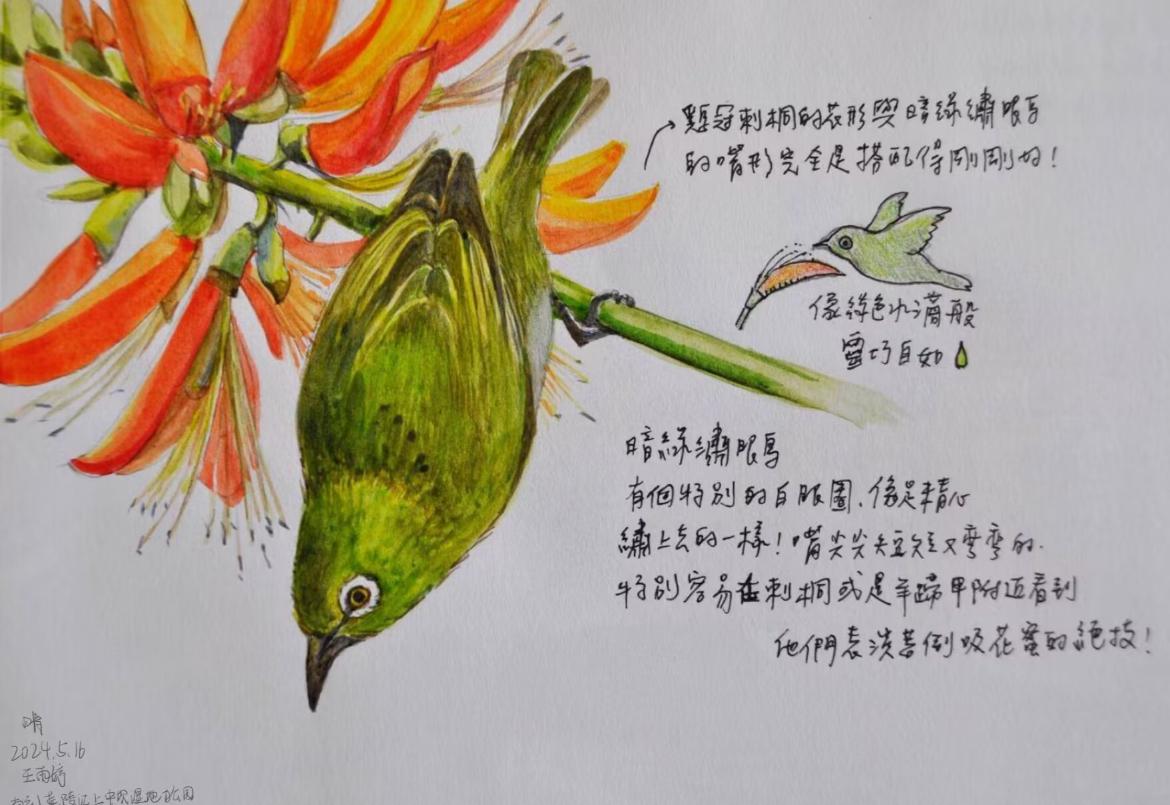 雞冠刺桐的花形與暗綠繡眼鳥
的嘴形完全是搭配得剛剛好！
像綠色水滴般
靈巧自如
暗綠繡眼鳥
有個特別的白眼圈，像是精心
繡上去的一樣！嘴尖尖短短又彎彎的．
特別容易在刺桐或是羊蹄甲附近看到
他們表演著倒吸花蜜的絕技！
晴
2024.5.16
王雨婷